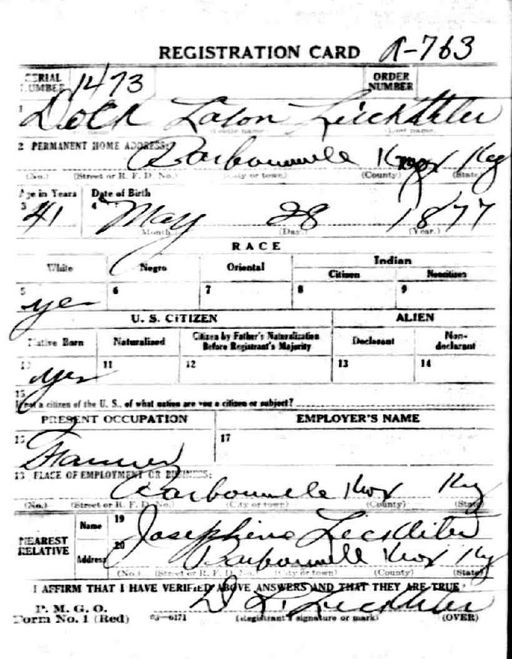 REGISTRATION CARD A-763
SERIAL NUMBER 1473 ORDER NUMBER
1 Dock Lason Lickliter
(Middle name) (Last name)
2 PERMANENT HOME ADDRESS:
Barbourville Knox Ky
(No.) (Street or R. F. D. No.) (City or town) (County) (State)
Age in Years Date of Birth
3 41 4 May 28 1877
(Month.) (Day.) (Year.)
RACE
White Negro Oriental Indian
Citizen Noncitizen
5 yes 6 7 8 9
U. S. CITIZEN ALIEN
Native Born Naturalized Citizen by Father's Naturalization Before Registrant's Majority Declarant Non-declarant
10 yes 11 12 13 14
15
If not a citizen of the U. S., of what nation are you a citizen or subject?
PRESENT OCCUPATION EMPLOYER'S NAME
16 Farmer 17
18 PLACE OF EMPLOYMENT OR BUSINESS:
Barbourville Knox Ky
(No.) (Street or R. F. D. No.) (City or town) (County) (State)
NEAREST RELATIVE Name 19 Josephine Lickliter
Address 20 Barbourville Knox Ky
(No.) (Street or R. F. D. No.) (City or town) (County) (State)
I AFFIRM THAT I HAVE VERIFIED ABOVE ANSWERS AND THAT THEY ARE TRUE
P. M. G. O.
Form No. 1 (Red) 03-6171 D. L. Lickliter
(Registrant's signature or mark) (OVER)